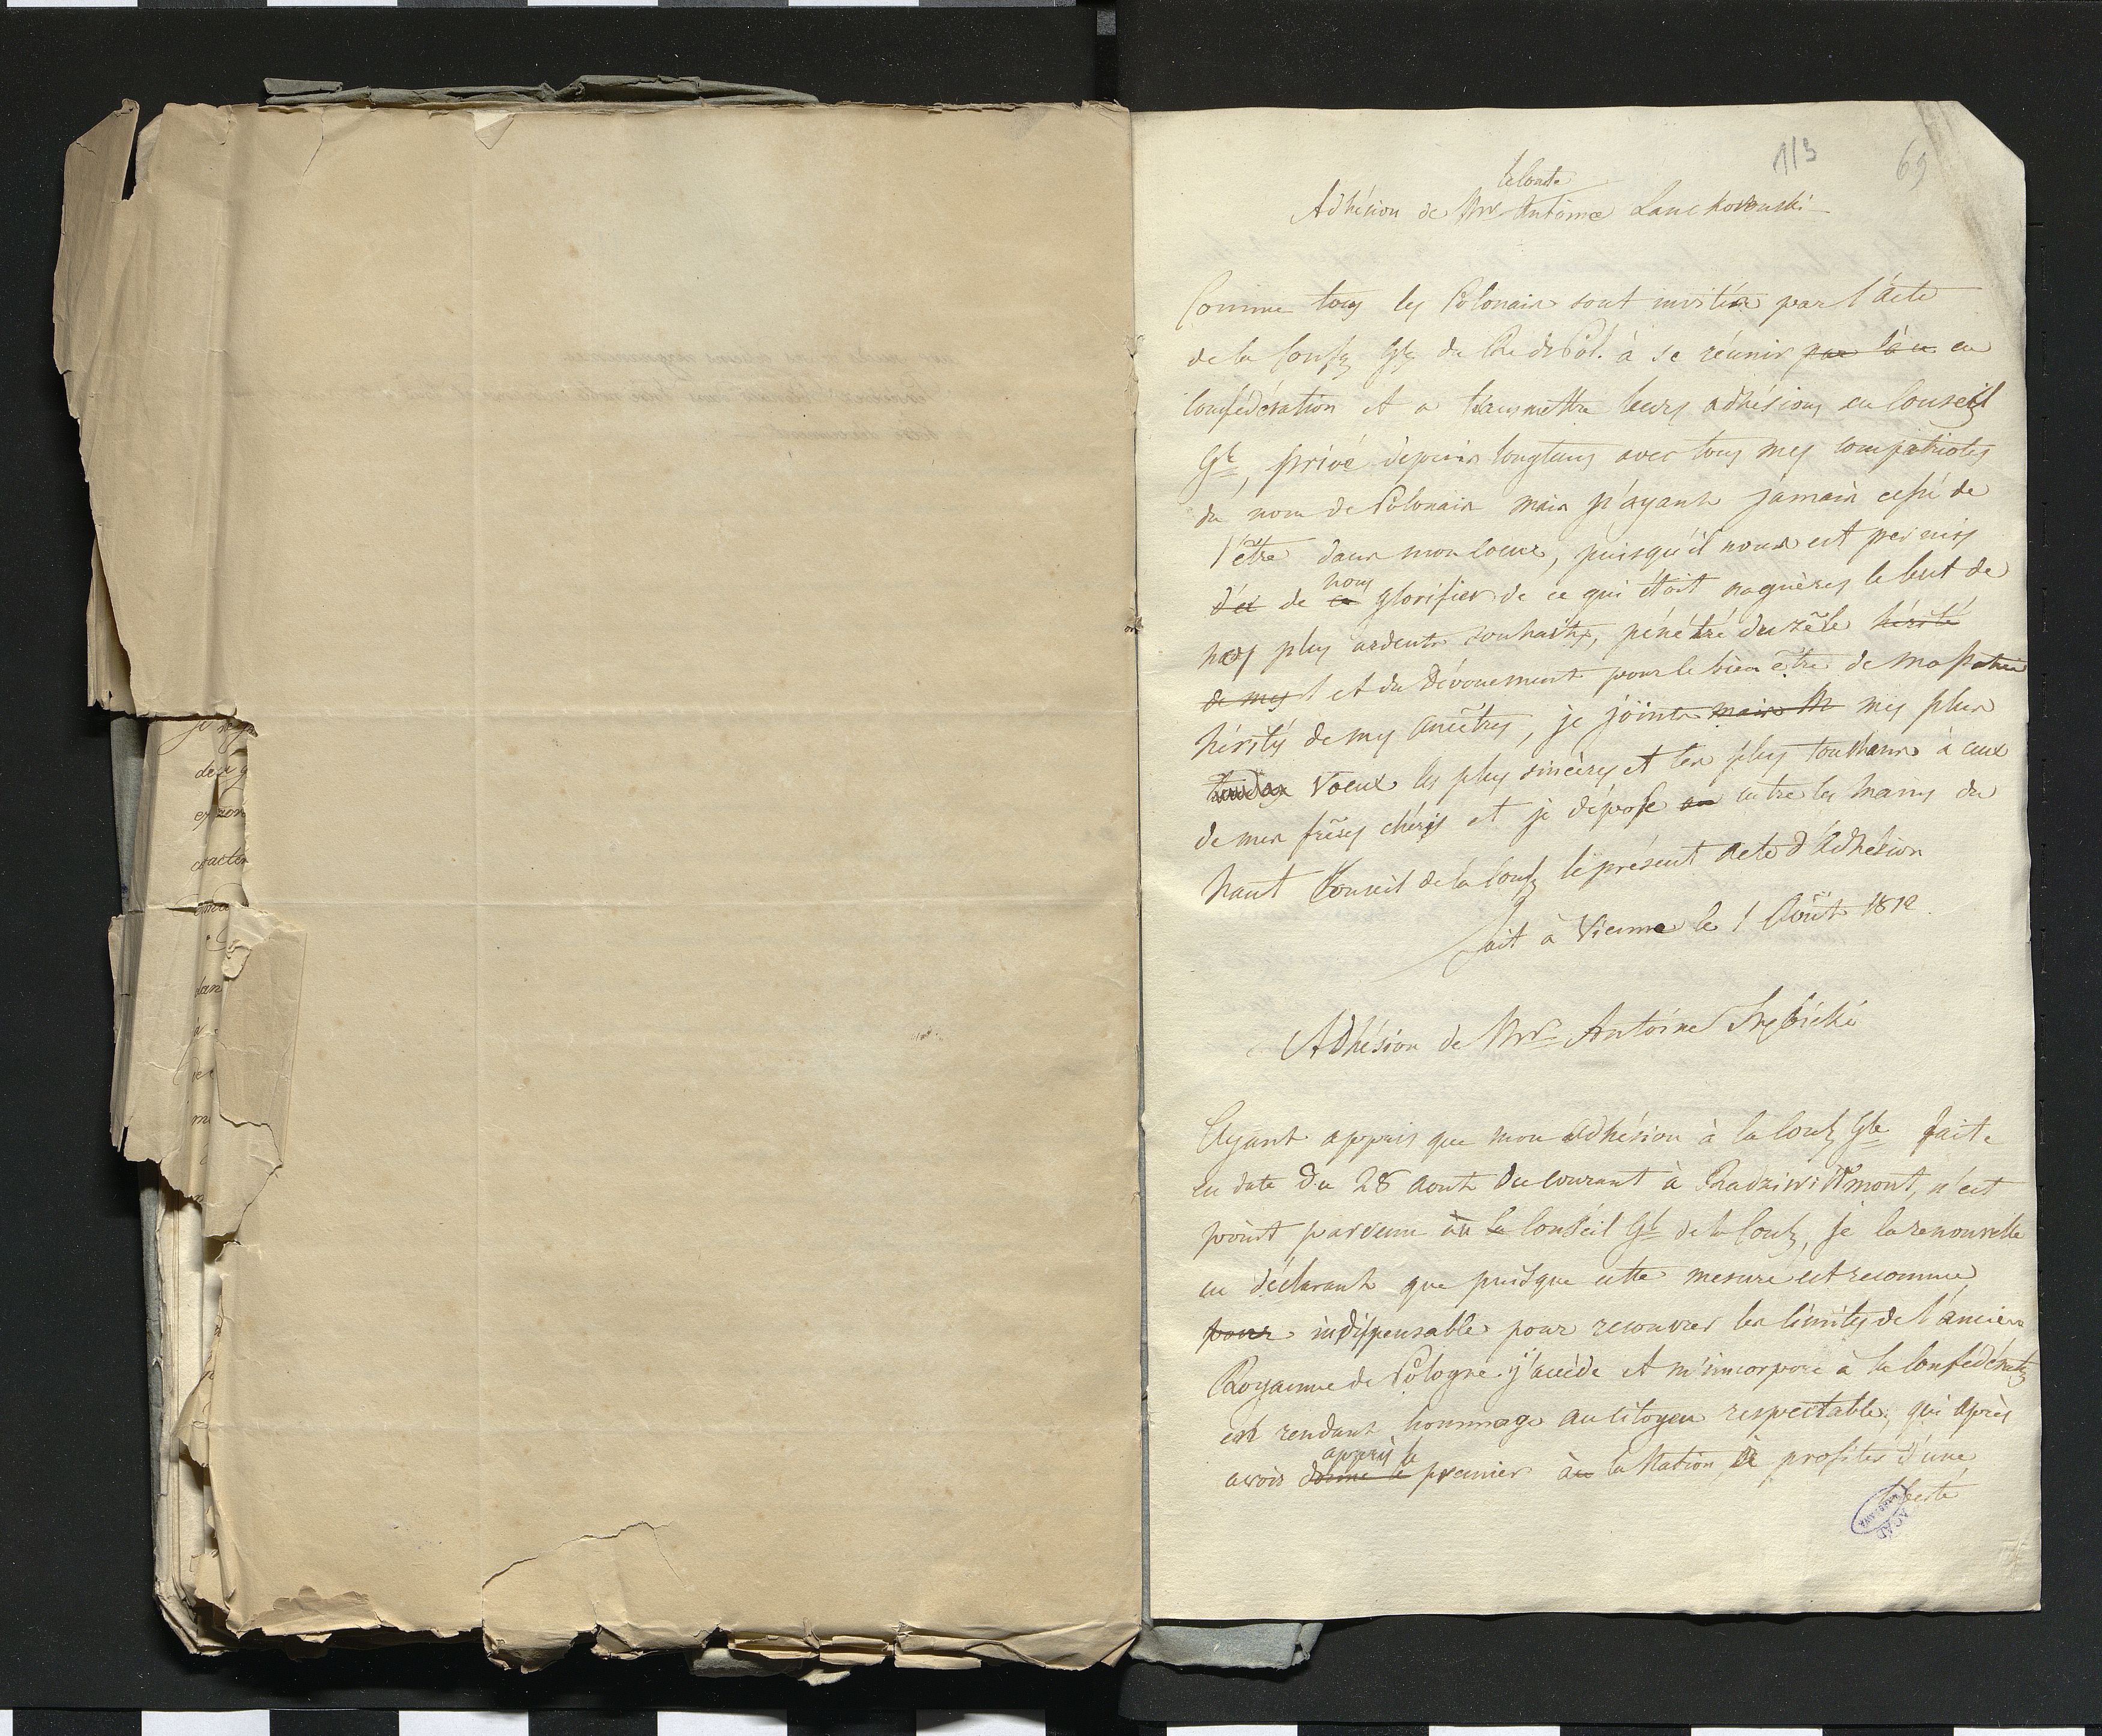 113 69
le Comte
Adhésion de Mr Antoine Lanckoronski
Comme tous les Polonais sont invités par l'acte
de la Conf. Gle du Rme de Pol. à se réunir en
confédération et a transmettre leurs adhésions au Conseil
Gl, privé depuis longtems avec tous mes compatriotes
du nom de Polonais mais n'ayant jamais cessé de
l'être dans mon coeur, puisqu'il nous est permis
de nous glorifier de ce qui étoit naguères le but de
nos plus ardents souhaits, pénétré du zèle hérité
de mes et du dévouement pour le bien être de ma patrie
hérités de mes ancêtres, je joints mes plus
voeux les plus sincères et les plus touchans à ceux
de mes frères chéris et je dépose entre les mains du
haut Conseil de la Conf. le présent acte d'adhésion
Fait à Vienne le 1 Août 1812.
Adhésion de Mr Antoine Trębicki
Ayant appris que mon adhésion à la Conf. Gle faite
en date du 28 aout du courant à Radziwiłłmont, n'est
point parvenu au Conseil Gl de la Conf., je la renouvelle
en déclarant que puisque cette mesure est reconnue
pour indispensable pour recouvrer les limites de l'ancien
Royaume de Pologne j'accède et m'incorpore à la Confédérat.
en rendant hommage au citoyen respectable, qui après
appris le
avoir donné le premier à la Nation de profiter d'une
AGAD
WARSZAWA